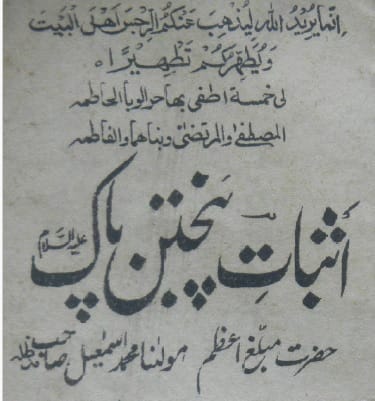 اِنَّمَا يُرِيْدُ اللهُ لِيُذْهِبَ عَنْكُمُ الرِّجْسَ اَهْلَ الْبَيْتِ
وَيُطَهِّرَكُمْ تَطْهِيْرًا ۝
لی خمسة اطفی بها حر الوبا الحاطمه
المصطفیٰ والمرتضیٰ وبناهما والفاطمه
اثباتِ پنجتن پاک علیہ السلام
حضرت مبلّغ اعظم مولٰنا محمد اسمٰعیل صاحب مدظلہ